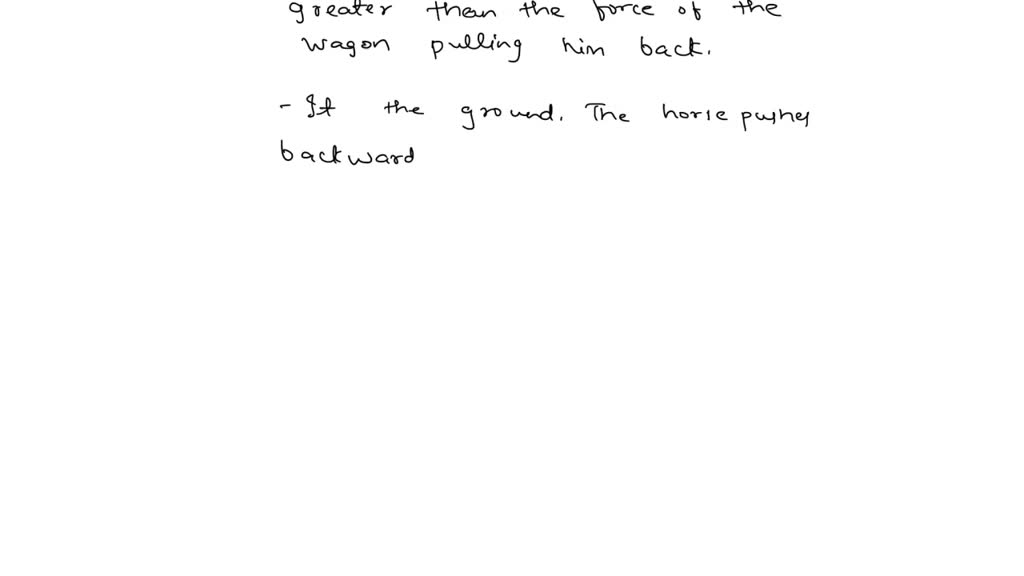 greater than the force of the
wagon pulling him back.
- It the ground. The horse pushes
backward